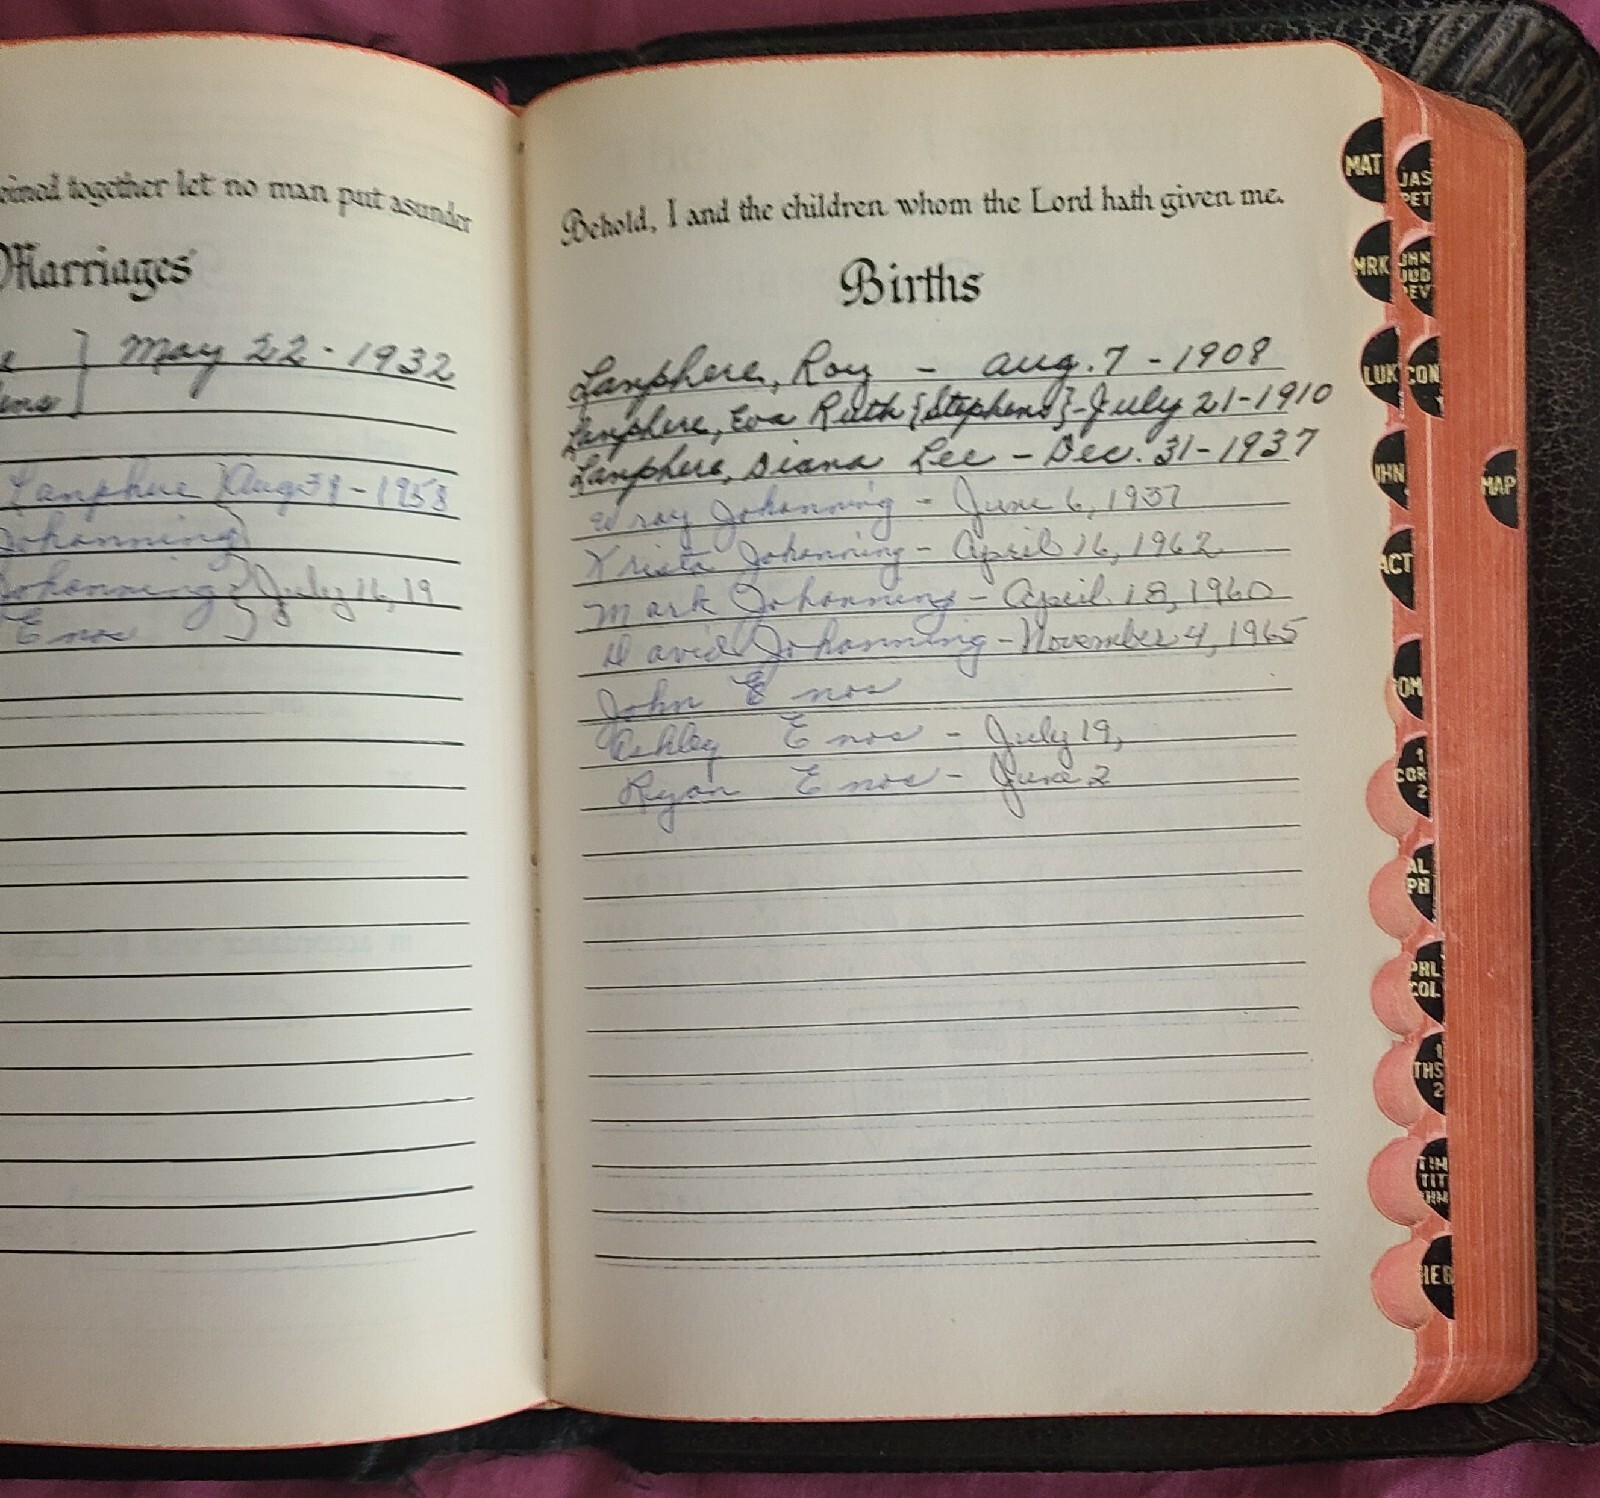 oined together let no man put asunder
Marriages
e } May 22 - 1932
ens
Lanphere } Aug 39 - 1958
Johanning
Johanning } July 16, 19
Enos 8
Behold, I and the children whom the Lord hath given me.
Births
Lanphere, Roy - Aug. 7 - 1908
Lanphere, Eva Ruth {Stephens} - July 21 - 1910
Lanphere, Diana Lee - Dec. 31 - 1937
Elroy Johanning - June 6, 1937
Krista Johanning - April 16, 1962
Mark Johanning - April 18, 1960
David Johanning - November 4, 1965
John Enos
Ashley Enos - July 19,
Ryan Enos - June 2
MAT
MRK
LUK
JHN
ACT
ROM
1
COR
2
GAL
EPH
PHL
COL
1
THS
2
TIM
TIT
PHM
HEB
JAS
PET
JHN
JUD
REV
CON
MAP